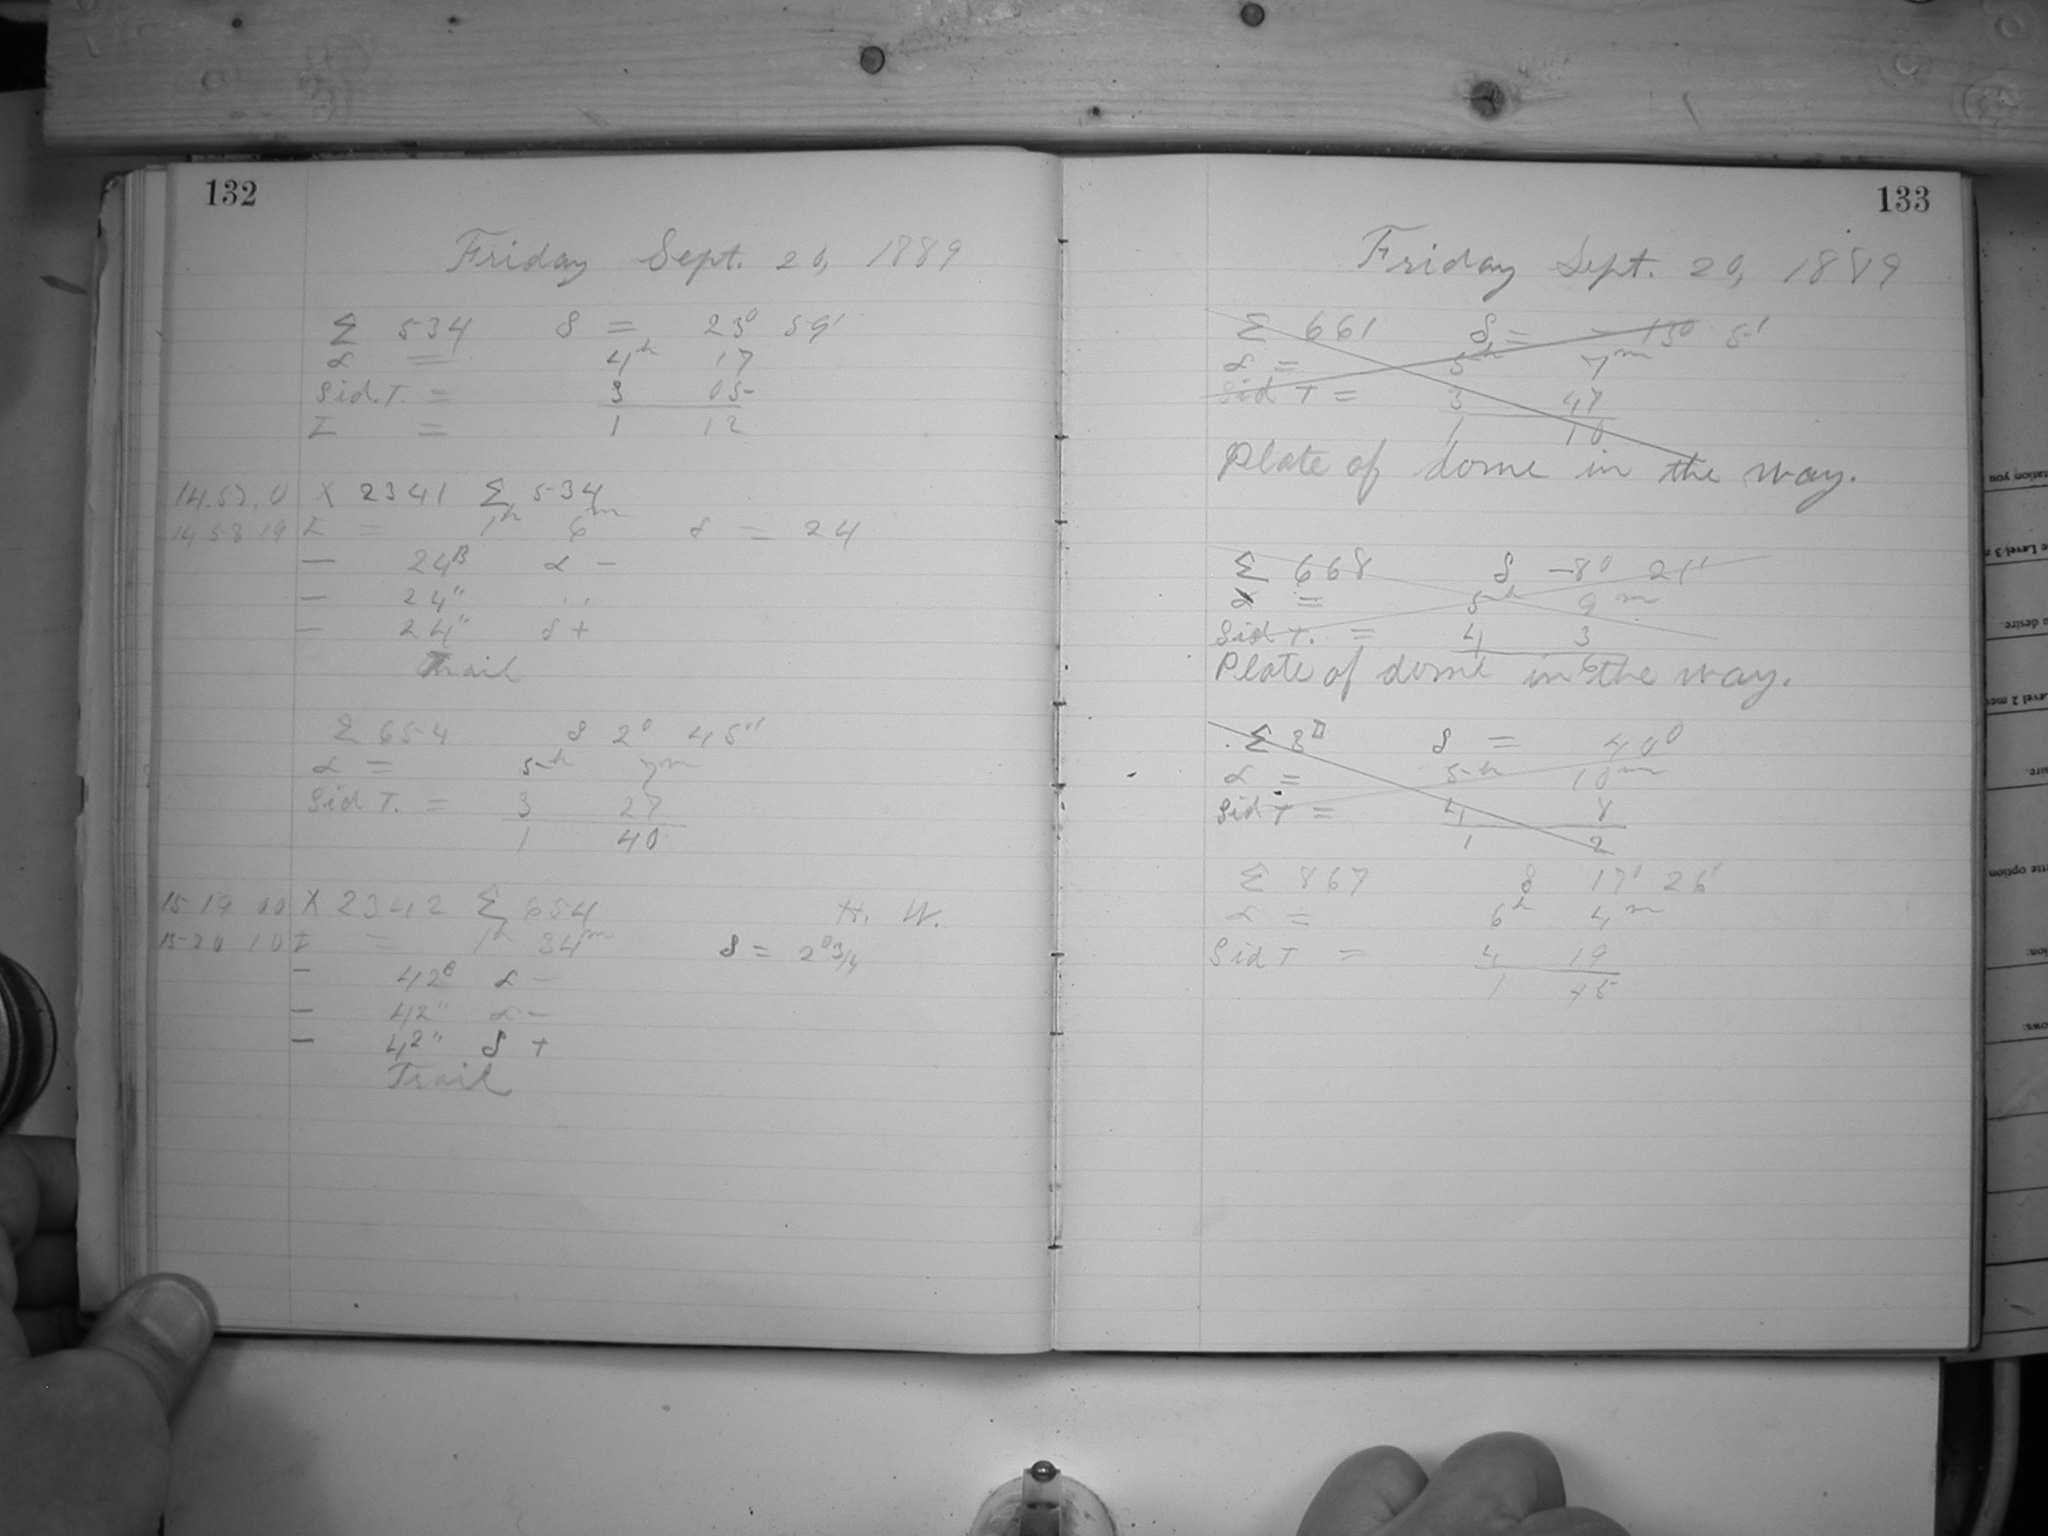 132
Friday Sept. 20, 1889
Σ 534 δ = 23° 59'
α = 4h 17
Sid. T. = 3 05
I = 1 12
14.57.0 X 2341 Σ 534
14 58 19 I = 1h 6m δ = 24
— 24B α —
— 24" "
— 24" δ +
Trail
Σ 654 δ 2° 45'
α = 5h 7m
Sid T. = 3 27
1 40
15 19 00 X 2342 Σ 654 H. W.
15 20 10 I = 1h 34m δ = 2° 3/4
— 42B α —
— 42" α —
— 42" δ +
Trail
133
Friday Sept. 20, 1889
Σ 661 δ = — 13° 5'
α = 5h 7m
Sid T = 3 47
1 10
Plate of dome in the way.
Σ 668 δ —8° 21'
α = 5h 9m
Sid T. = 4 3
6
Plate of dome in the way.
Σ 3II δ = 40°
α = 5h 10m
Sid T = 4 8
1 2
Σ 867 δ 17° 26'
α = 6h 4m
Sid T = 4 19
1 45